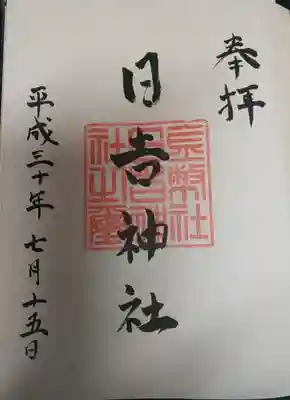 奉拝
日吉神社
平成三十年七月十五日